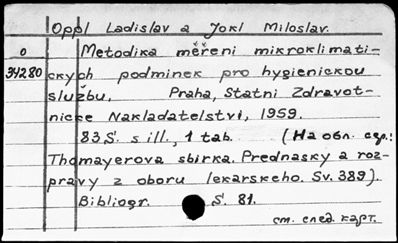 Oppl Ladislav a Jokl Miloslav.
0 Metodika měření mikroklimati-
34280 ckých podminek pro hygienickou
službu, Praha, Statni Zdravot-
nicke Nakladatelství, 1959.
83 S. s ill., 1 tab. (На обл. сер.:
Thomayerova sbirka. Prednasky a roz-
pravy z oboru lekarskeho. Sv. 389).
Bibliogr. S. 81.
см. след. карт.